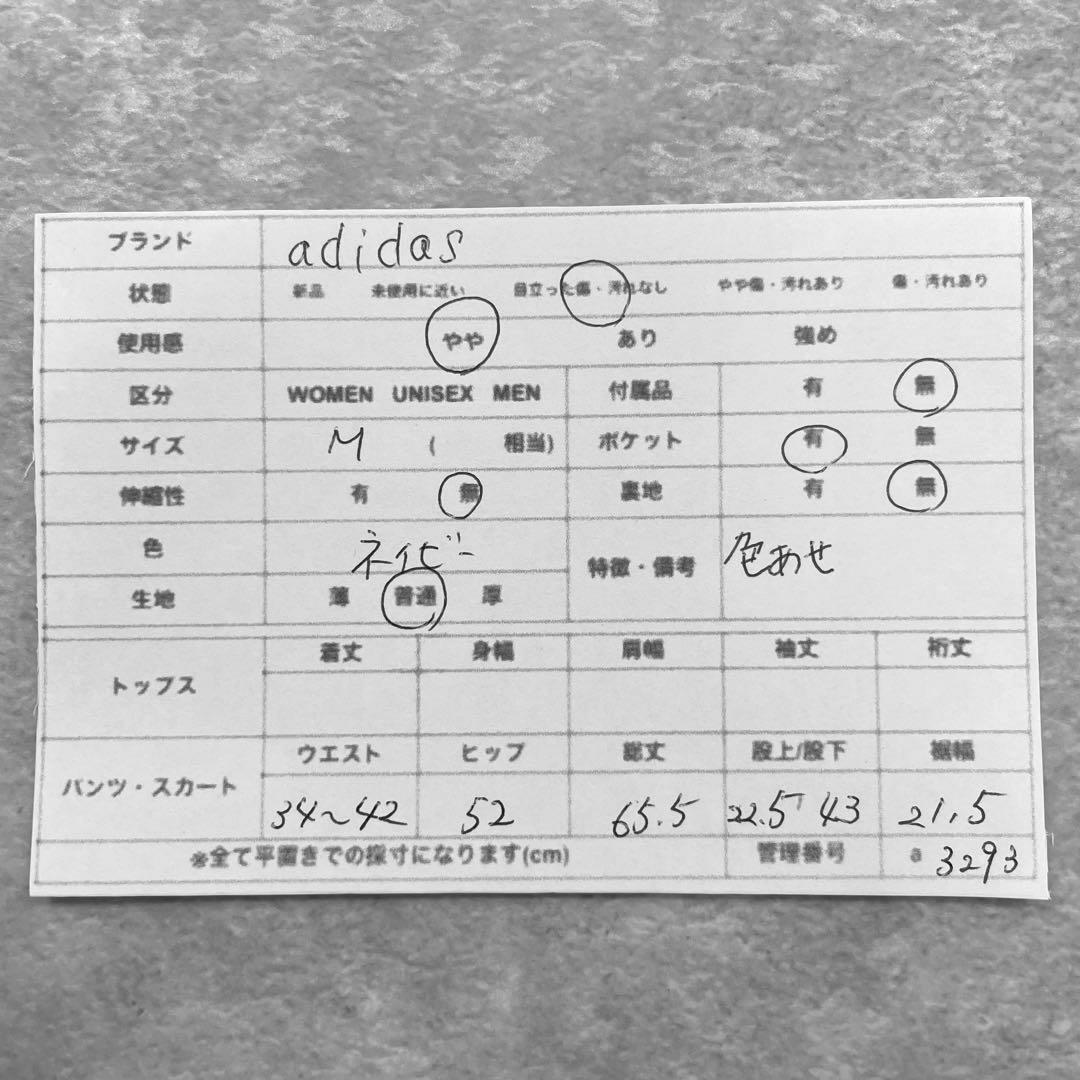 ブランド adidas
状態 新品 未使用に近い 目立った傷・汚れなし やや傷・汚れあり 傷・汚れあり
使用感 やや あり 強め
区分 WOMEN UNISEX MEN 付属品 有 無
サイズ M ( 相当) ポケット 有 無
伸縮性 有 無 裏地 有 無
色 ネイビー 特徴・備考 色あせ
生地 薄 普通 厚
トップス 着丈 身幅 肩幅 袖丈 裄丈
パンツ・スカート ウエスト ヒップ 総丈 股上/股下 裾幅
34〜42 52 65.5 22.5 43 21.5
※全て平置きでの採寸になります(cm) 管理番号 a 3293